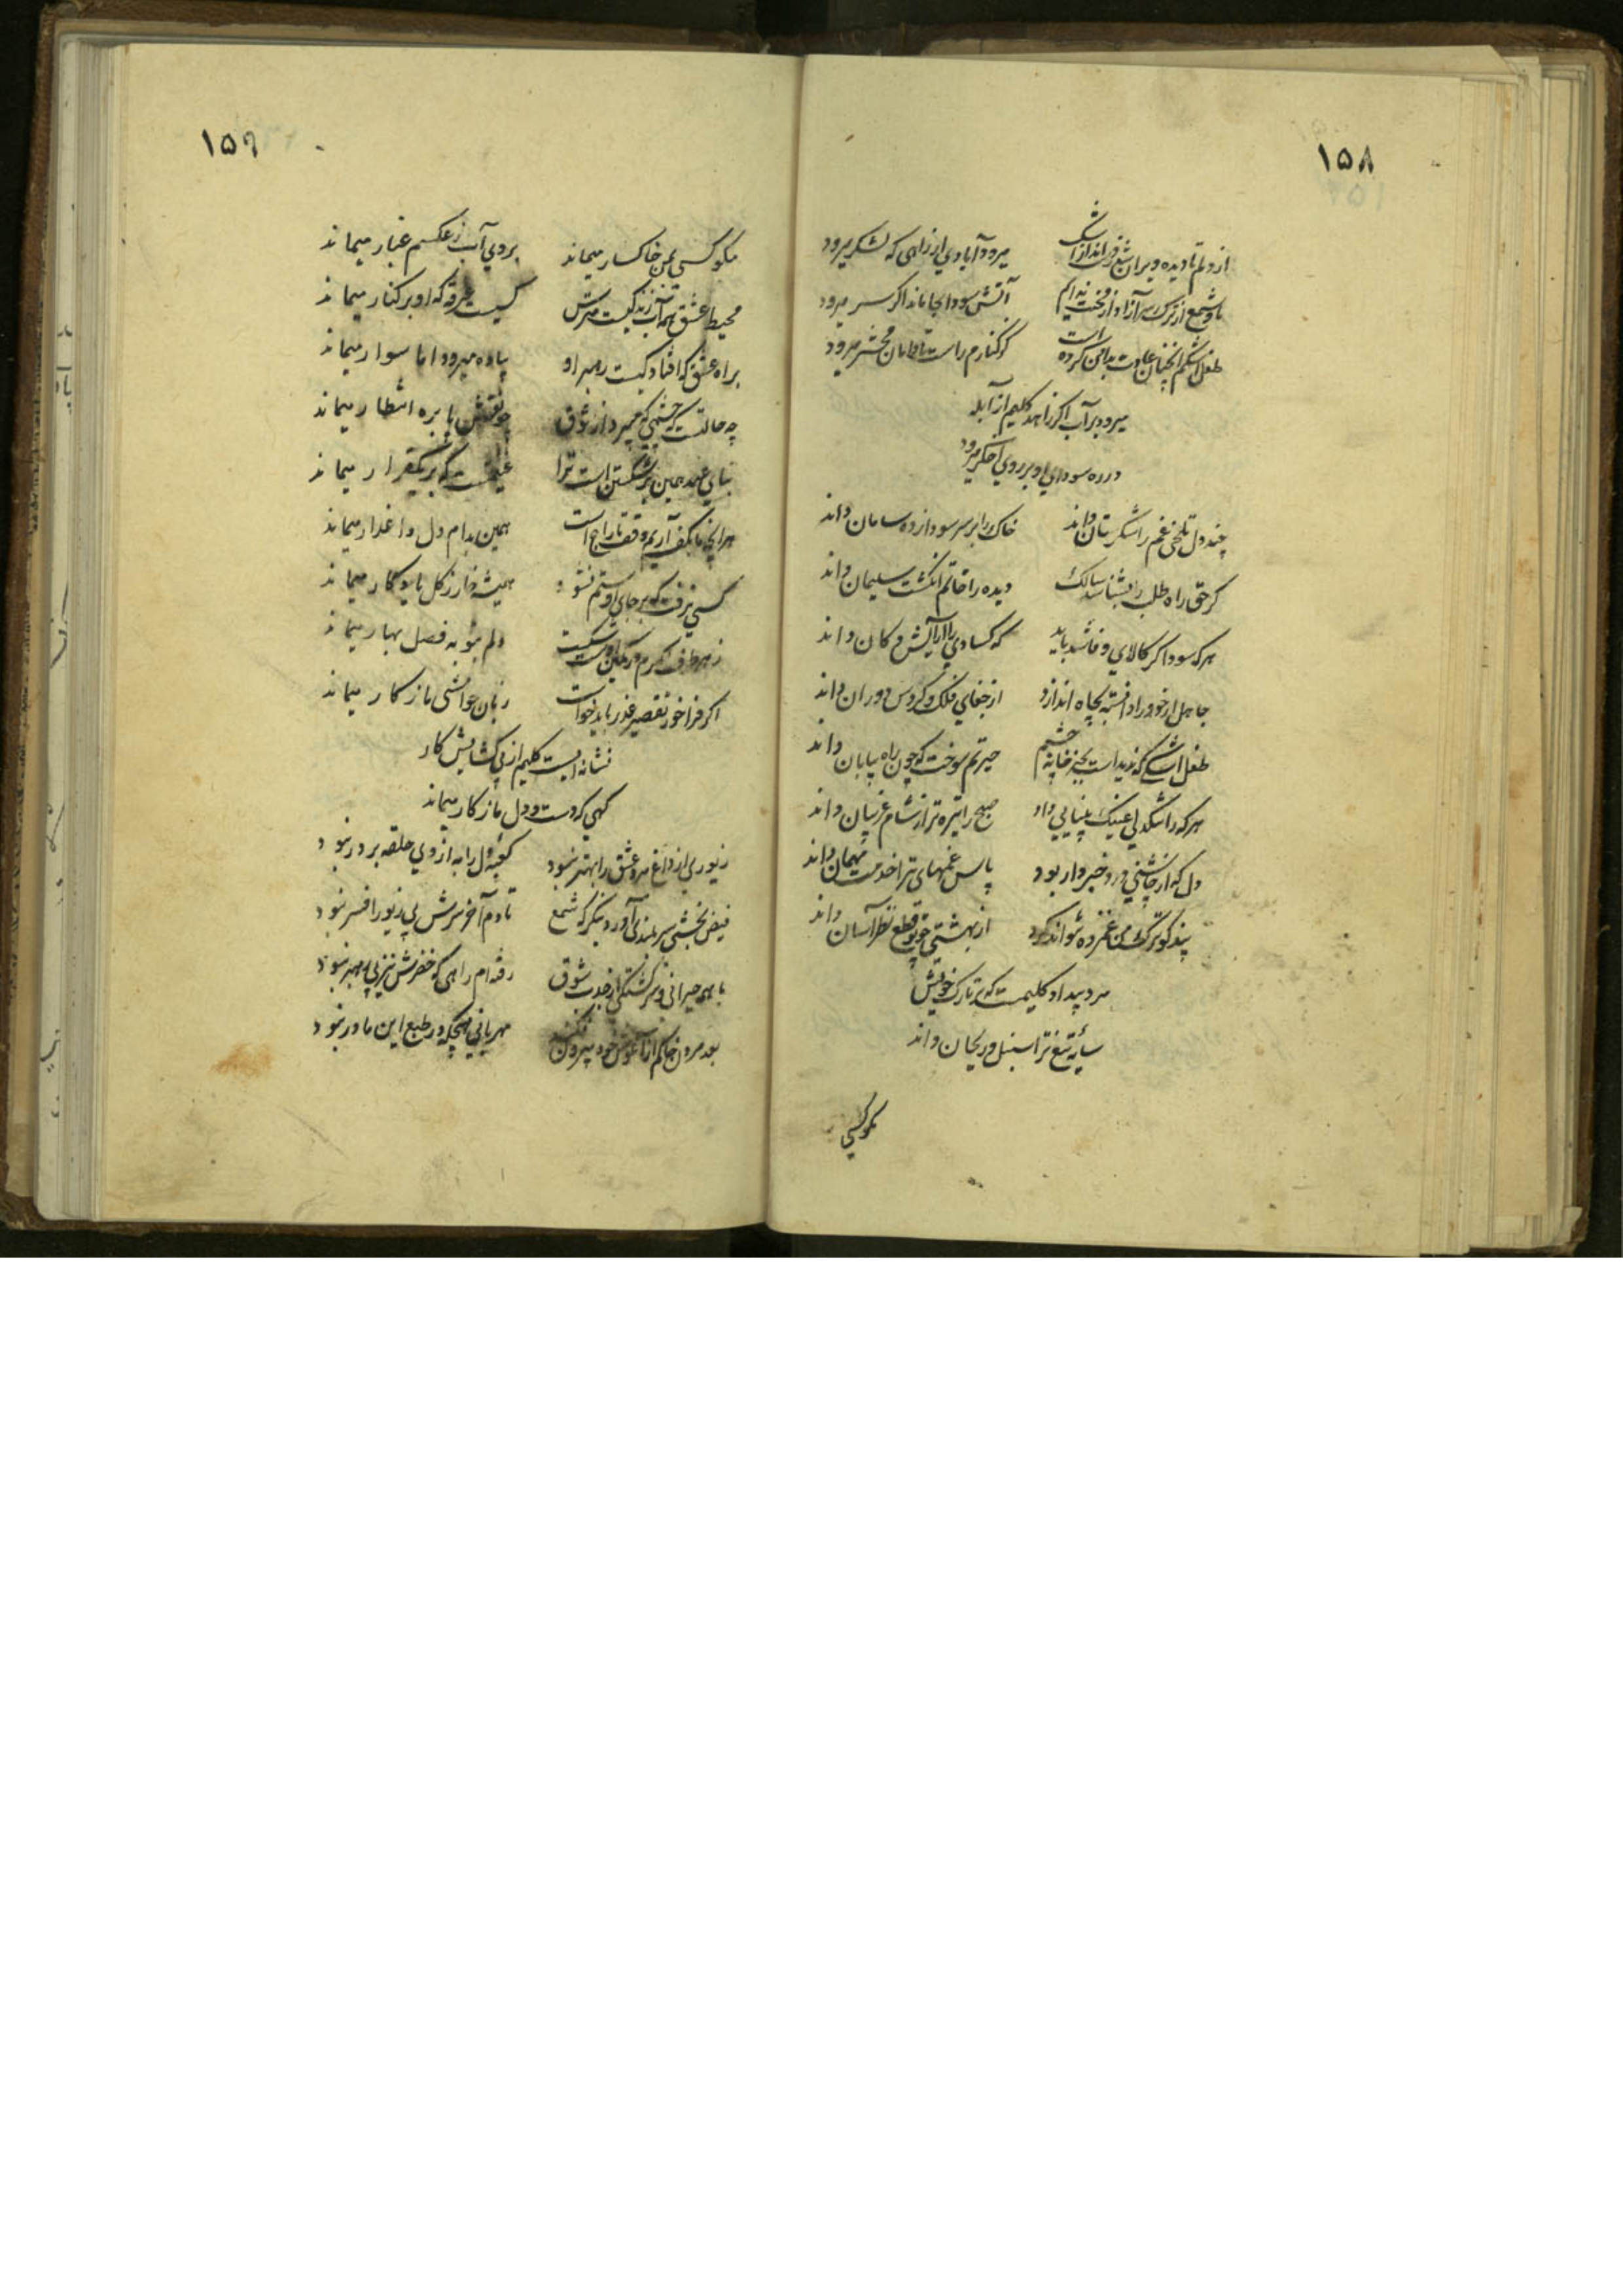 ۱۵۸
از دلم تا دیده ویران شد ز اشک
میرود آبادی از راهی که لشکر میرود
ما و شمع از ترک سر آزاد
آتش سودا بجا ماند اگر سر میرود
طفل اشکم آنچنان عادت بدامن کرده است
کز کنارم راست تا دامان محشر میرود
میرود بر آب اگر زاهد کلیم از آبله
در ره سودای او بر روی اخگر میرود
چند دل تلخی غم را شکرستان داند
خاک را بر سر سودازده سامان داند
گر حق راه طلب را بشناسد سالک
دیده را خاتم انگشت سلیمان داند
هر که سوداگر کالای وفا شد باید
که کسادی را آرایش دکان داند
جاهل از خود را دانسته بچاه اندازد
از جفای فلک و گردش دوران داند
طفل اشکی که ندیداست بجز خانه چشم
حیرتم سوخت که چون راه بیابان داند
هر که را سنگدلی عینک بینایی داد
صبح را تیره تر از شام غریبان داند
دل که از چاشنی درد خبردار بود
پاس غمهای ترا خدمت مهمان داند
پندگو ترک من غمزده نتواند کرد
از بهشتی چو تو قطع نظر آسان داند
مرد بیداد کلیمست که بر تارک خویش
سایه تیغ ترا سنبل و ریحان داند
مگو کسی
۱۵۹
مگو کسی بمن خاکسار میماند
بروی آب ز عکسم غبار میماند
محیط عشق همه آب زندگیست مترس
کیست غرقه که او بر کنار میماند
براه عشق که افتاد کیست رهبر او
پیاده میرود اما سوار میماند
چه حالتست که چشمی که میپرد از شوق
چو نقش پا بره انتظار میماند
بنای عهد همین بر شکستن است ترا
غنیمتست که بر یکقرار میماند
هر آنچه ما بکف آریم وقف تاراج است
همین بدام دل داغدار میماند
کسی نرفت که بر جای او ستم نشود
همیشه خار ز گل یادگار میماند
ز هر طرف نگرم رنگین
دلم بتو به فصل بهار میماند
اگر فراخور تقصیر عذر باید خواست
زبان خواهشی ما ز کار میماند
نشانه ایست کلیم از پی گشایش کار
گهی که دست و دل ما ز کار میماند
زیوری از داغ مرد عشق را بهتر نبود
کعبه دل را به از وی حلقه بر در نبود
فیض بخشی سربلندی آورد بنگر که شمع
تا دم آخر سرش بی زیور افسر نبود
با همه حیرانی و سرگشتگی از جذب شوق
رفته ام راهی که خضرش نیز پی رهبر نبود
بعد مردن خاکم از آغوش خود بیرون فکند
مهربانی هیچگه در طبع این مادر نبود